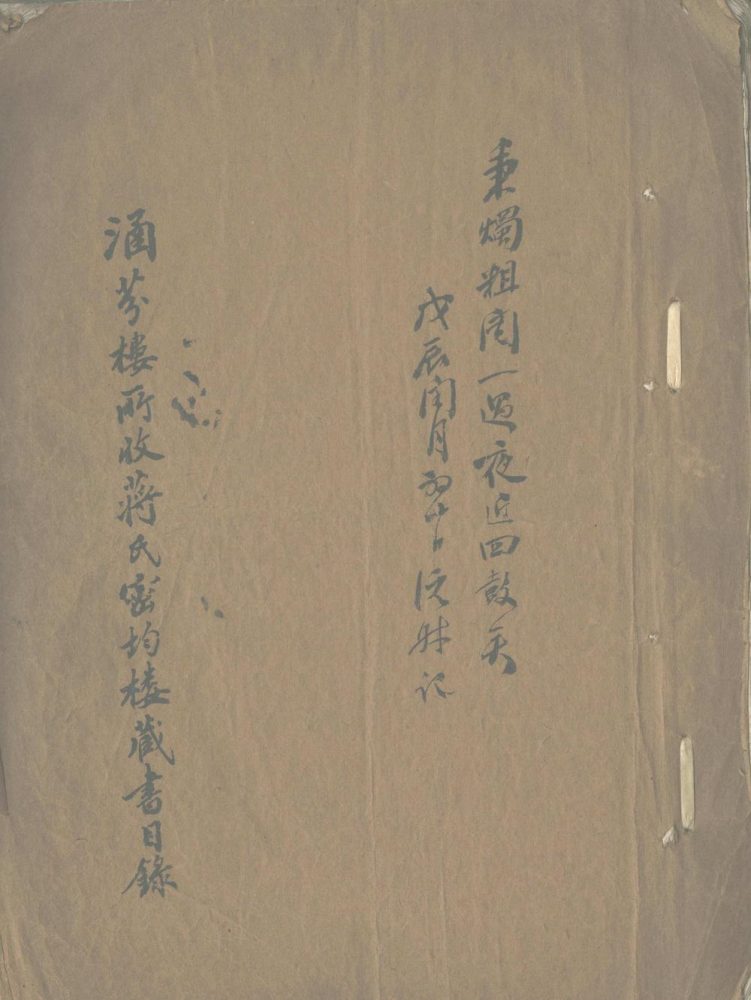 秉燭粗閱一過夜近四鼓矣
戊辰閏月初日沅叔記
涵芬樓所收蔣氏密均樓藏書目錄